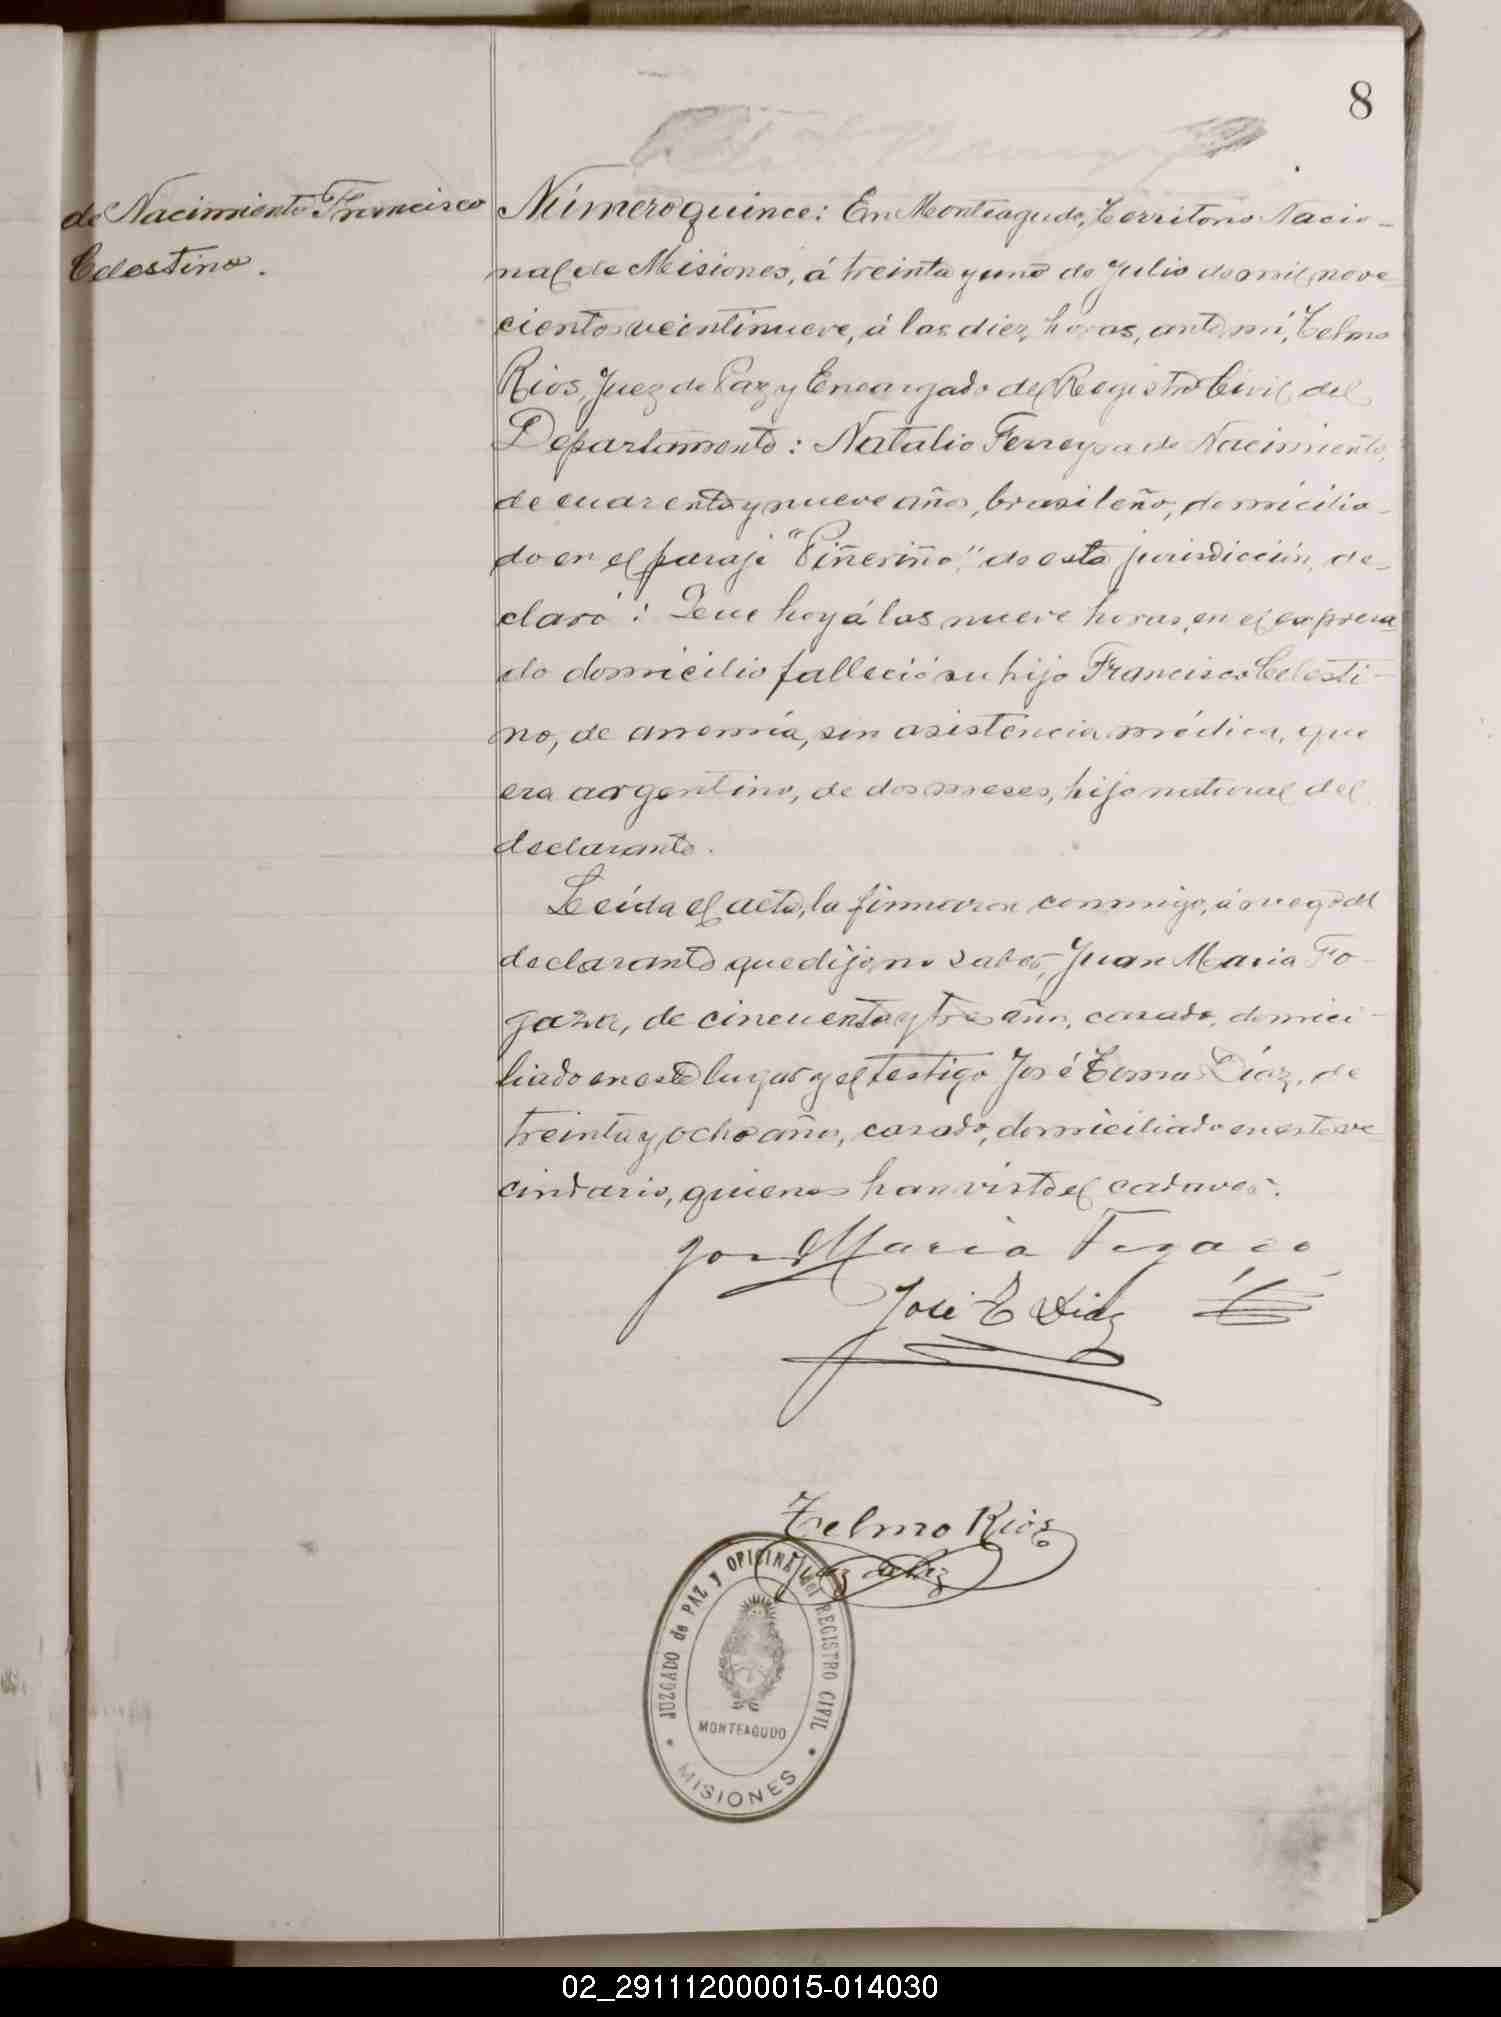 8
de Nacimiento Francisco
Celestino.
Número quince: En Monteagudo, Territorio Nacio-
nal de Misiones, á treinta y uno de Julio de mil nove
cientos veintinueve, á las diez horas, ante mí, Telmo
Rios, Juez de Paz y Encargado del Registro Civil del
Departamento: Natalio Ferreyra de Nacimiento,
de cuarenta y nueve años, brasileño, domicilia-
do en el paraje "Piñeriño", de esta jurisdicción, de-
claró: Que hoy á las nueve horas, en el expresa
do domicilio falleció su hijo Francisco Celesti-
no, de anemia, sin asistencia médica, que
era argentino, de dos meses, hijo natural del
declarante.
Leída el acta, la firmaron conmigo, á ruego del
declarante que dijo no saber, Juan Maria Fo-
gaza, de cincuenta y tres años, casado, domici-
liado en este lugar y el testigo José Díaz, de
treinta y ocho años, casado, domiciliado en este ve
cindario, quienes han visto el cadaver.
Maria
José E Diaz
Telmo Rios
Juez de Paz
JUZGADO de PAZ y OFICINA del REGISTRO CIVIL
MONTEAGUDO
MISIONES
02_291112000015-014030